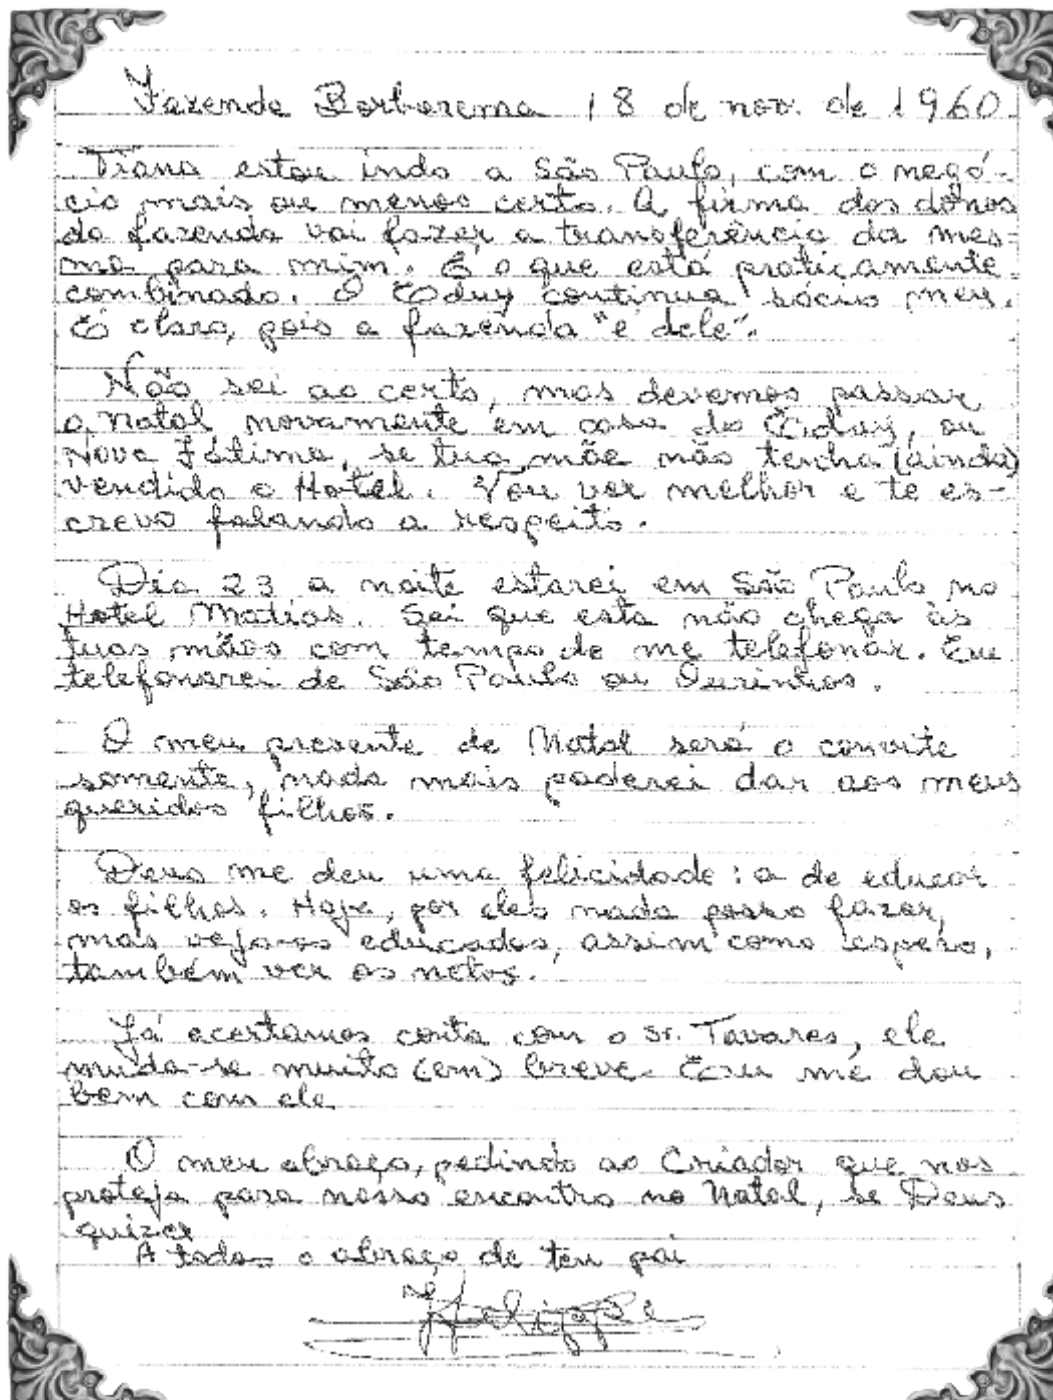 Fazenda Borborema 18 de nov. de 1960.
Tiana estou indo a São Paulo, com o negó-
cio mais ou menos certo. A firma dos donos
da fazenda vai fazer a transferência da mes-
ma para mim. É o que está praticamente
combinado. O Eduy continua sócio meu.
É claro, pois a fazenda "é dele".
Não sei ao certo, mas devemos passar
o Natal novamente em casa do Eduy, ou
Nova Fátima, se tua mãe não tenha (ainda)
vendido o Hotel. Vou ver melhor e te es-
crevo falando a respeito.
Dia 23 a noite estarei em São Paulo no
Hotel Matias. Sei que esta não chega às
tuas mãos com tempo de me telefonar. Eu
telefonarei de São Paulo ou Ourinhos.
O meu presente de Natal será o convite
somente, nada mais poderei dar aos meus
queridos filhos.
Deus me deu uma felicidade: a de educar
os filhos. Hoje, por eles nada posso fazer,
mas vejo-os educados, assim como espero,
também ver os netos.
Já acertamos conta com o sr. Tavares, ele
muda-se muito (em) breve. Eu me dou
bem com ele
O meu abraço, pedindo ao Criador que nos
proteja para nosso encontro no Natal, se Deus
quizer
A todos o abraço de teu pai
Felippe